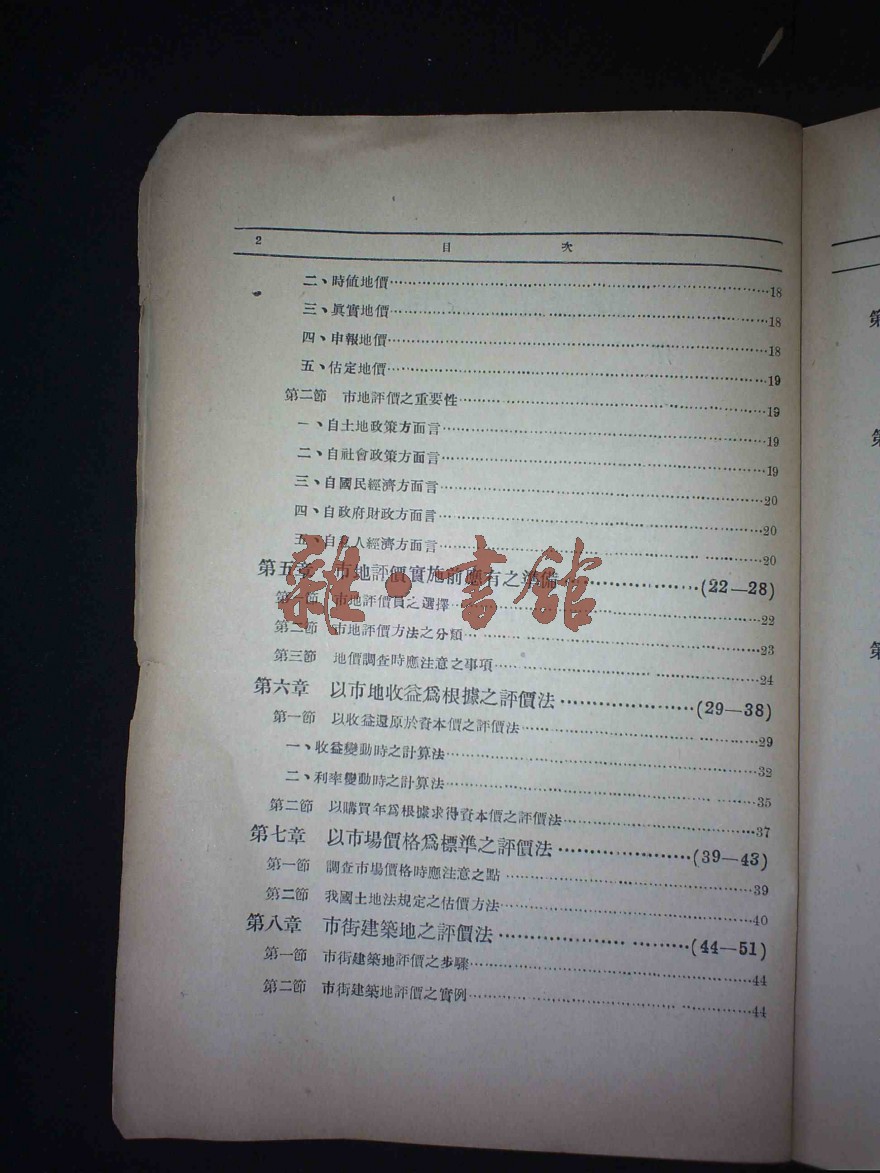 2 目 次
二、時値地價……18
三、眞實地價……18
四、申報地價……18
五、估定地價……19
第二節 市地評價之重要性……19
一、自土地政策方面言……19
二、自社會政策方面言……19
三、自國民經濟方面言……20
四、自政府財政方面言……20
五、自私人經濟方面言……20
第五章 市地評價實施前應有之準備……(22—28)
第一節 市地評價員之選擇……22
第二節 市地評價方法之分類……23
第三節 地價調查時應注意之事項……24
第六章 以市地收益爲根據之評價法……(29—38)
第一節 以收益還原於資本價之評價法……29
一、收益變動時之計算法……32
二、利率變動時之計算法……35
第二節 以購買年爲根據求得資本價之評價法……37
第七章 以市場價格爲標準之評價法……(39—43)
第一節 調查市場價格時應注意之點……39
第二節 我國土地法規定之估價方法……40
第八章 市街建築地之評價法……(44—51)
第一節 市街建築地評價之步驟……44
第二節 市街建築地評價之實例……44
雜·書館
第
第
第